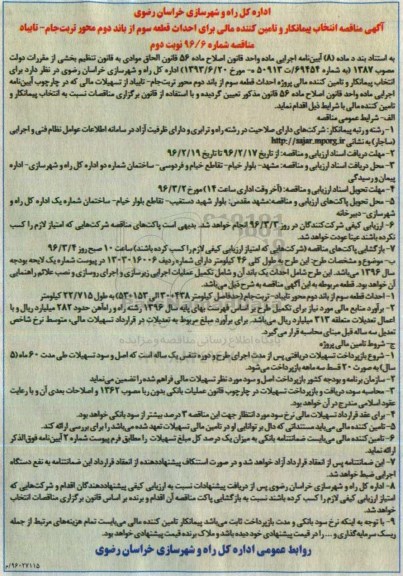 اداره کل راه و شهرسازی خراسان رضوی
آگهی مناقصه انتخاب پیمانکار و تامین کننده مالی برای احداث قطعه سوم از باند دوم محور تربت‌جام- تایباد
مناقصه شماره ۹۶/۶ نوبت دوم
به استناد بند د ماده (۸) آیین‌نامه اجرایی ماده واحد قانون اصلاح ماده ۵۶ قانون الحاق موادی به قانون تنظیم بخشی از مقررات دولت
مصوب ۱۳۸۷ (به شماره ۶۹۴۵۴/ت ۵۰۹۱۳ ه- مورخ ۱۳۹۳/۶/۲۰) اداره کل راه و شهرسازی خراسان رضوی در نظر دارد برای
انتخاب پیمانکار و تامین کننده مالی پروژه احداث قطعه سوم از باند دوم محور تربت‌جام- تایباد از تسهیلات مالی که در چارچوب آیین‌نامه
اجرایی ماده واحد قانون اصلاح ماده ۵۶ قانون مذکور تعیین گردیده و با استفاده از قانون برگزاری مناقصات نسبت به انتخاب پیمانکار و
تامین کننده مالی با شرایط ذیل اقدام نماید.
الف- شرایط عمومی مناقصه
۱- رشته و رتبه پیمانکار: شرکت‌های دارای صلاحیت در رشته راه و ترابری و دارای ظرفیت آزاد در سامانه اطلاعات عوامل نظام فنی و اجرایی
(ساجار) به نشانی http://sajar.mporg.ir
۲- مهلت دریافت اسناد ارزیابی و مناقصه: از تاریخ ۹۶/۲/۱۷ تا تاریخ ۹۶/۲/۱۹
۳- محل دریافت اسناد ارزیابی و مناقصه: مشهد- بلوار خیام- تقاطع خیام و فردوسی- ساختمان شماره دو اداره کل راه و شهرسازی- اداره
پیمان و رسیدگی
۴- مهلت تحویل اسناد ارزیابی و مناقصه: (آخر وقت اداری ساعت ۱۴) مورخ ۹۶/۳/۲
۵- محل تحویل پاکت‌های ارزیابی و مناقصه: مشهد مقدس: بلوار شهید دستغیب- تقاطع بلوار خیام- ساختمان شماره یک اداره کل راه و
شهرسازی- دبیرخانه
۶- ارزیابی کیفی شرکت‌کنندگان در روز ۹۶/۳/۳ انجام خواهد شد. بدیهی است پاکت‌های مناقصه شرکت‌هایی که امتیاز لازم را کسب
نکرده باشند عینا عودت خواهد شد.
۷- بازگشایی پاکت‌های مناقصه (شرکت‌هایی که امتیاز ارزیابی کیفی لازم را کسب کرده باشند) ساعت ۱۰ صبح روز ۹۶/۳/۴
ب- موضوع و مشخصات طرح: این طرح به طول کلی ۴۶ کیلومتر دارای شماره ردیف ۱۳۰۳۰۱۶۰۰۶ در پیوست شماره یک لایحه بودجه
سال ۱۳۹۶ می‌باشد. این طرح شامل احداث یک باند آن و شامل تکمیل عملیات اجرایی زیرسازی و اجرای روسازی و نصب علائم راهنمایی
آن خواهد بود. قطعه مربوطه به این آگهی مناقصه به شرح ذیل می‌باشد.
۱- احداث قطعه سوم از باند دوم محور تایباد- تربت‌جام (حدفاصل کیلومتر ۳۰+۴۳۸ الی ۵۳+۱۵۳) به طول ۲۲/۷۱۵ کیلومتر
۲- برآورد منابع مالی مورد نیاز برای تکمیل طرح بر اساس فهرست بهای پایه سال ۱۳۹۶ رشته راه و راه‌آهن حدود ۲۸۲ میلیارد ریال و با
اعمال تعدیلات متعلقه ۳۱۲ میلیارد ریال می‌باشد. برای برآورد مبلغ مربوط به تعدیلات در قرارداد تسهیلات مالی، متوسط نرخ شاخص
تعدیل سه ساله قبل مبنای محاسبه قرار می‌گیرد.
ج- شروط تامین مالی پروژه
۱- شروع بازپرداخت تسهیلات دریافتی پس از مدت اجرای طرح و دوره تنفس یک ساله است که اصل و سود تسهیلات طی مدت ۶۰ ماه (۵
سال) به صورت ۲۰ قسط سه ماهه بازپرداخت می‌شود.
۲- سازمان برنامه و بودجه کشور بازپرداخت اصل و سود مورد نظر تسهیلات مالی فراهم شده را تضمین می‌نماید
۳- محاسبه سود، دریافت و بازپرداخت تسهیلات در چارچوب قانون عملیات بانکی بدون ربا مصوب ۱۳۶۲ و اصلاحات بعدی آن و با رعایت
عقود اسلامی مندرج در آن خواهد بود.
۴- برای عقد قرارداد تسهیلات مالی نرخ سود مورد انتظار جهت این مناقصه ۳ درصد بیشتر از سود بانکی خواهد بود.
۵- تامین کننده مالی می‌باید مستنداتی که دال بر توانایی او در تامین مالی تسهیلات تعهد شده می‌باشد را برای بررسی ارائه کند.
۶- تامین کننده مالی می‌بایست ضمانتنامه بانکی به میزان یک درصد کل مبلغ تسهیلات را مطابق فرم پیوست شماره ۲ آیین‌نامه فوق‌الذکر
ارائه نماید.
۷- این ضمانتنامه پس از انعقاد قرارداد آزاد خواهد شد و در صورت استنکاف پیشنهاددهنده از انعقاد قرارداد این ضمانتنامه به نفع دستگاه
اجرایی ضبط خواهد شد.
۸- اداره کل راه و شهرسازی خراسان رضوی پس از دریافت پیشنهادات نسبت به ارزیابی کیفی پیشنهاددهندگان اقدام و شرکت‌هایی که
امتیاز ارزیابی کیفی لازم را کسب کرده باشند نسبت به بازگشایی پاکت مناقصه آن اقدام و برنده بر اساس قانون برگزاری مناقصات انتخاب
خواهد شد.
۹- با توجه به اینکه نرخ سود بانکی و مدت بازپرداخت ثابت می‌باشد پیمانکار تامین کننده مالی می‌بایست تمام هزینه‌های مرتبط از جمله
ریسک سرمایه‌گذاری و ... را در قیمت پیشنهادی خود دیده باشد و ملاک برنده قیمت پیشنهادی خواهد بود.
روابط عمومی اداره کل راه و شهرسازی خراسان رضوی
۹۶۰۲۷۱۱۵/م